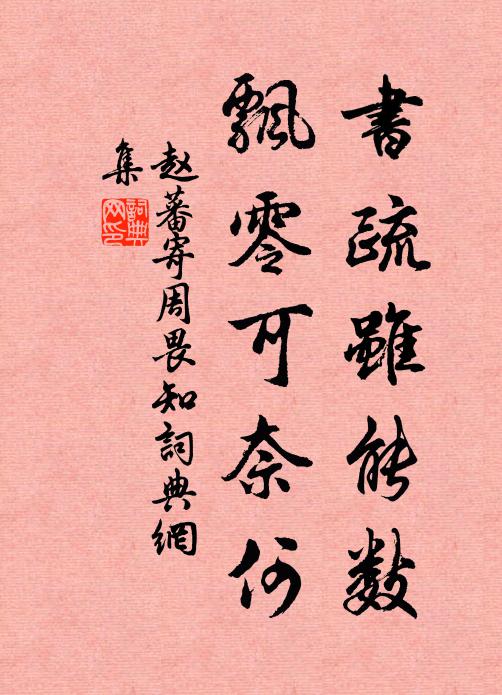 書疏雖能數
飄零可奈何
赵蕃寄周畏知詞典網
集
詞典
网印